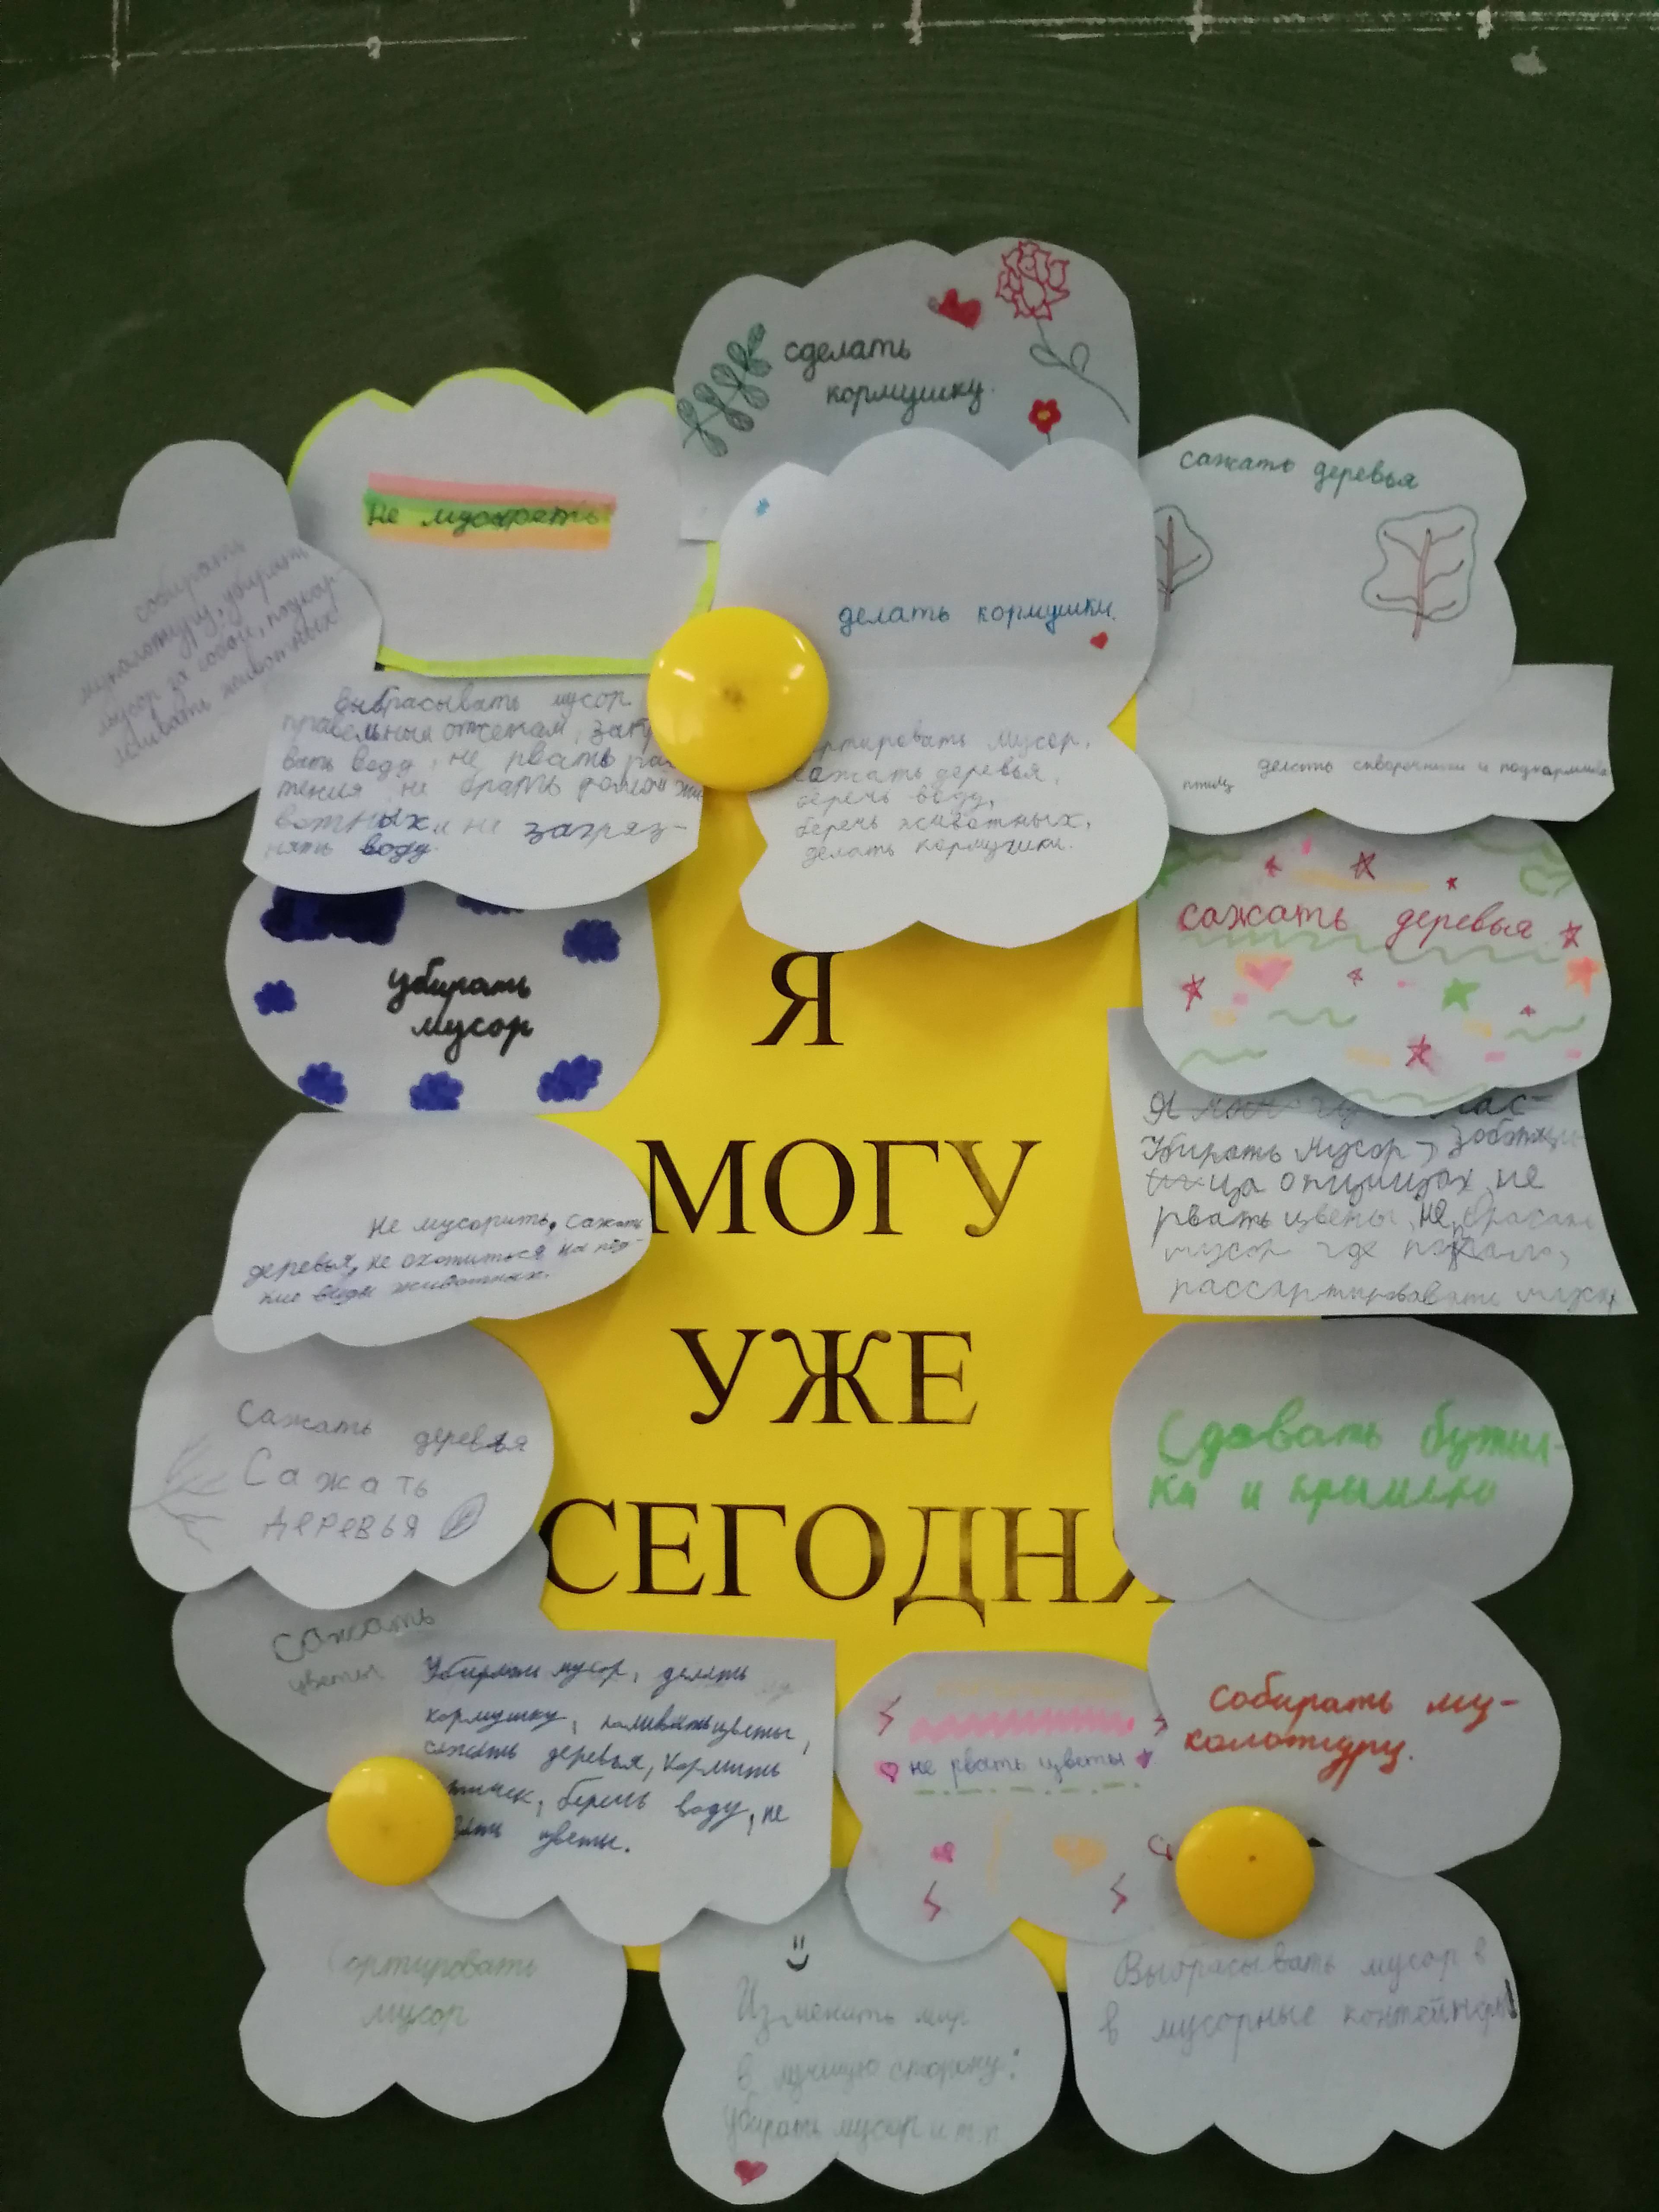 сделать
кормушку.
не мусорить
сажать деревья
собирать
мукалатуру, убирать
мусор за собой, подкар-
мливать животных.
делать кормушки.
выбрасывать мусор
вать воду, не рвать рас
тения не брать домой жи
вотных и не загряз-
нять воду.
ртировать мусор,
сажать деревья,
беречь воду,
беречь животных,
делать кормушки.
делать скворечники и подкармлива
птиц
убирать
мусор
сажать деревья
Я
МОГУ
УЖЕ
СЕГОДНЯ
Убирать мусор,
рвать цветы, не бросать
мусор где попало,
не мусорить, сажать
деревья, не охотиться на ред-
кие виды животных.
Сажать деревья
Сажать
деревья
Сдавать бутыл-
ки и крышки
Сажать
цветы
Убирать мусор, делать
кормушку, поливать цветы,
сажать деревья, кормить
птичек, беречь воду, не
цветы.
не рвать цветы
собирать му-
калатуру.
сортировать
мусор
Изменить мир
в лучшую сторону:
убирать мусор и т.п
Выбрасывать мусор в
в мусорные контейнеры!